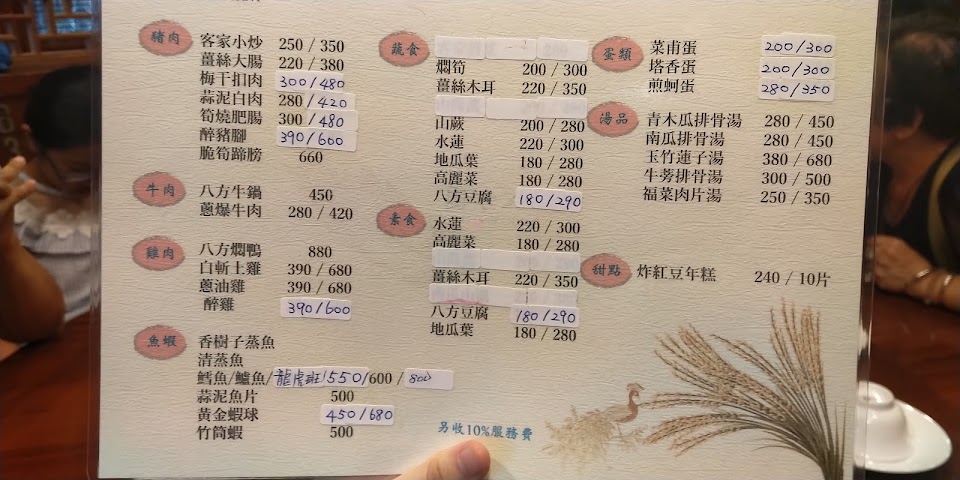 豬肉
客家小炒 250 / 350
薑絲大腸 220 / 380
梅干扣肉 300/480
蒜泥白肉 280 / 420
筍燒肥腸 300 / 480
醉豬腳 390/600
脆筍蹄膀 660
牛肉
八方牛鍋 450
蔥爆牛肉 280 / 420
雞肉
八方燜鴨 880
白斬土雞 390 / 680
蔥油雞 390 / 680
醉雞 390/600
魚蝦
香樹子蒸魚
清蒸魚
鱈魚/鱸魚/龍虎斑/550/600 / 800
蒜泥魚片 500
黃金蝦球 450/680
竹筒蝦 500
蔬食
燜筍 200 / 300
薑絲木耳 220 / 350
山蕨 200 / 280
水蓮 220 / 300
地瓜葉 180 / 280
高麗菜 180 / 280
八方豆腐 180/290
素食
水蓮 220 / 300
高麗菜 180 / 280
薑絲木耳 220 / 350
八方豆腐 180/290
地瓜葉 180 / 280
另收10%服務費
蛋類
菜甫蛋 200/300
塔香蛋 200/300
煎蚵蛋 280/350
湯品
青木瓜排骨湯 280 / 450
南瓜排骨湯 280 / 450
玉竹蓮子湯 380 / 680
牛蒡排骨湯 300 / 500
福菜肉片湯 250 / 350
甜點
炸紅豆年糕 240 / 10片